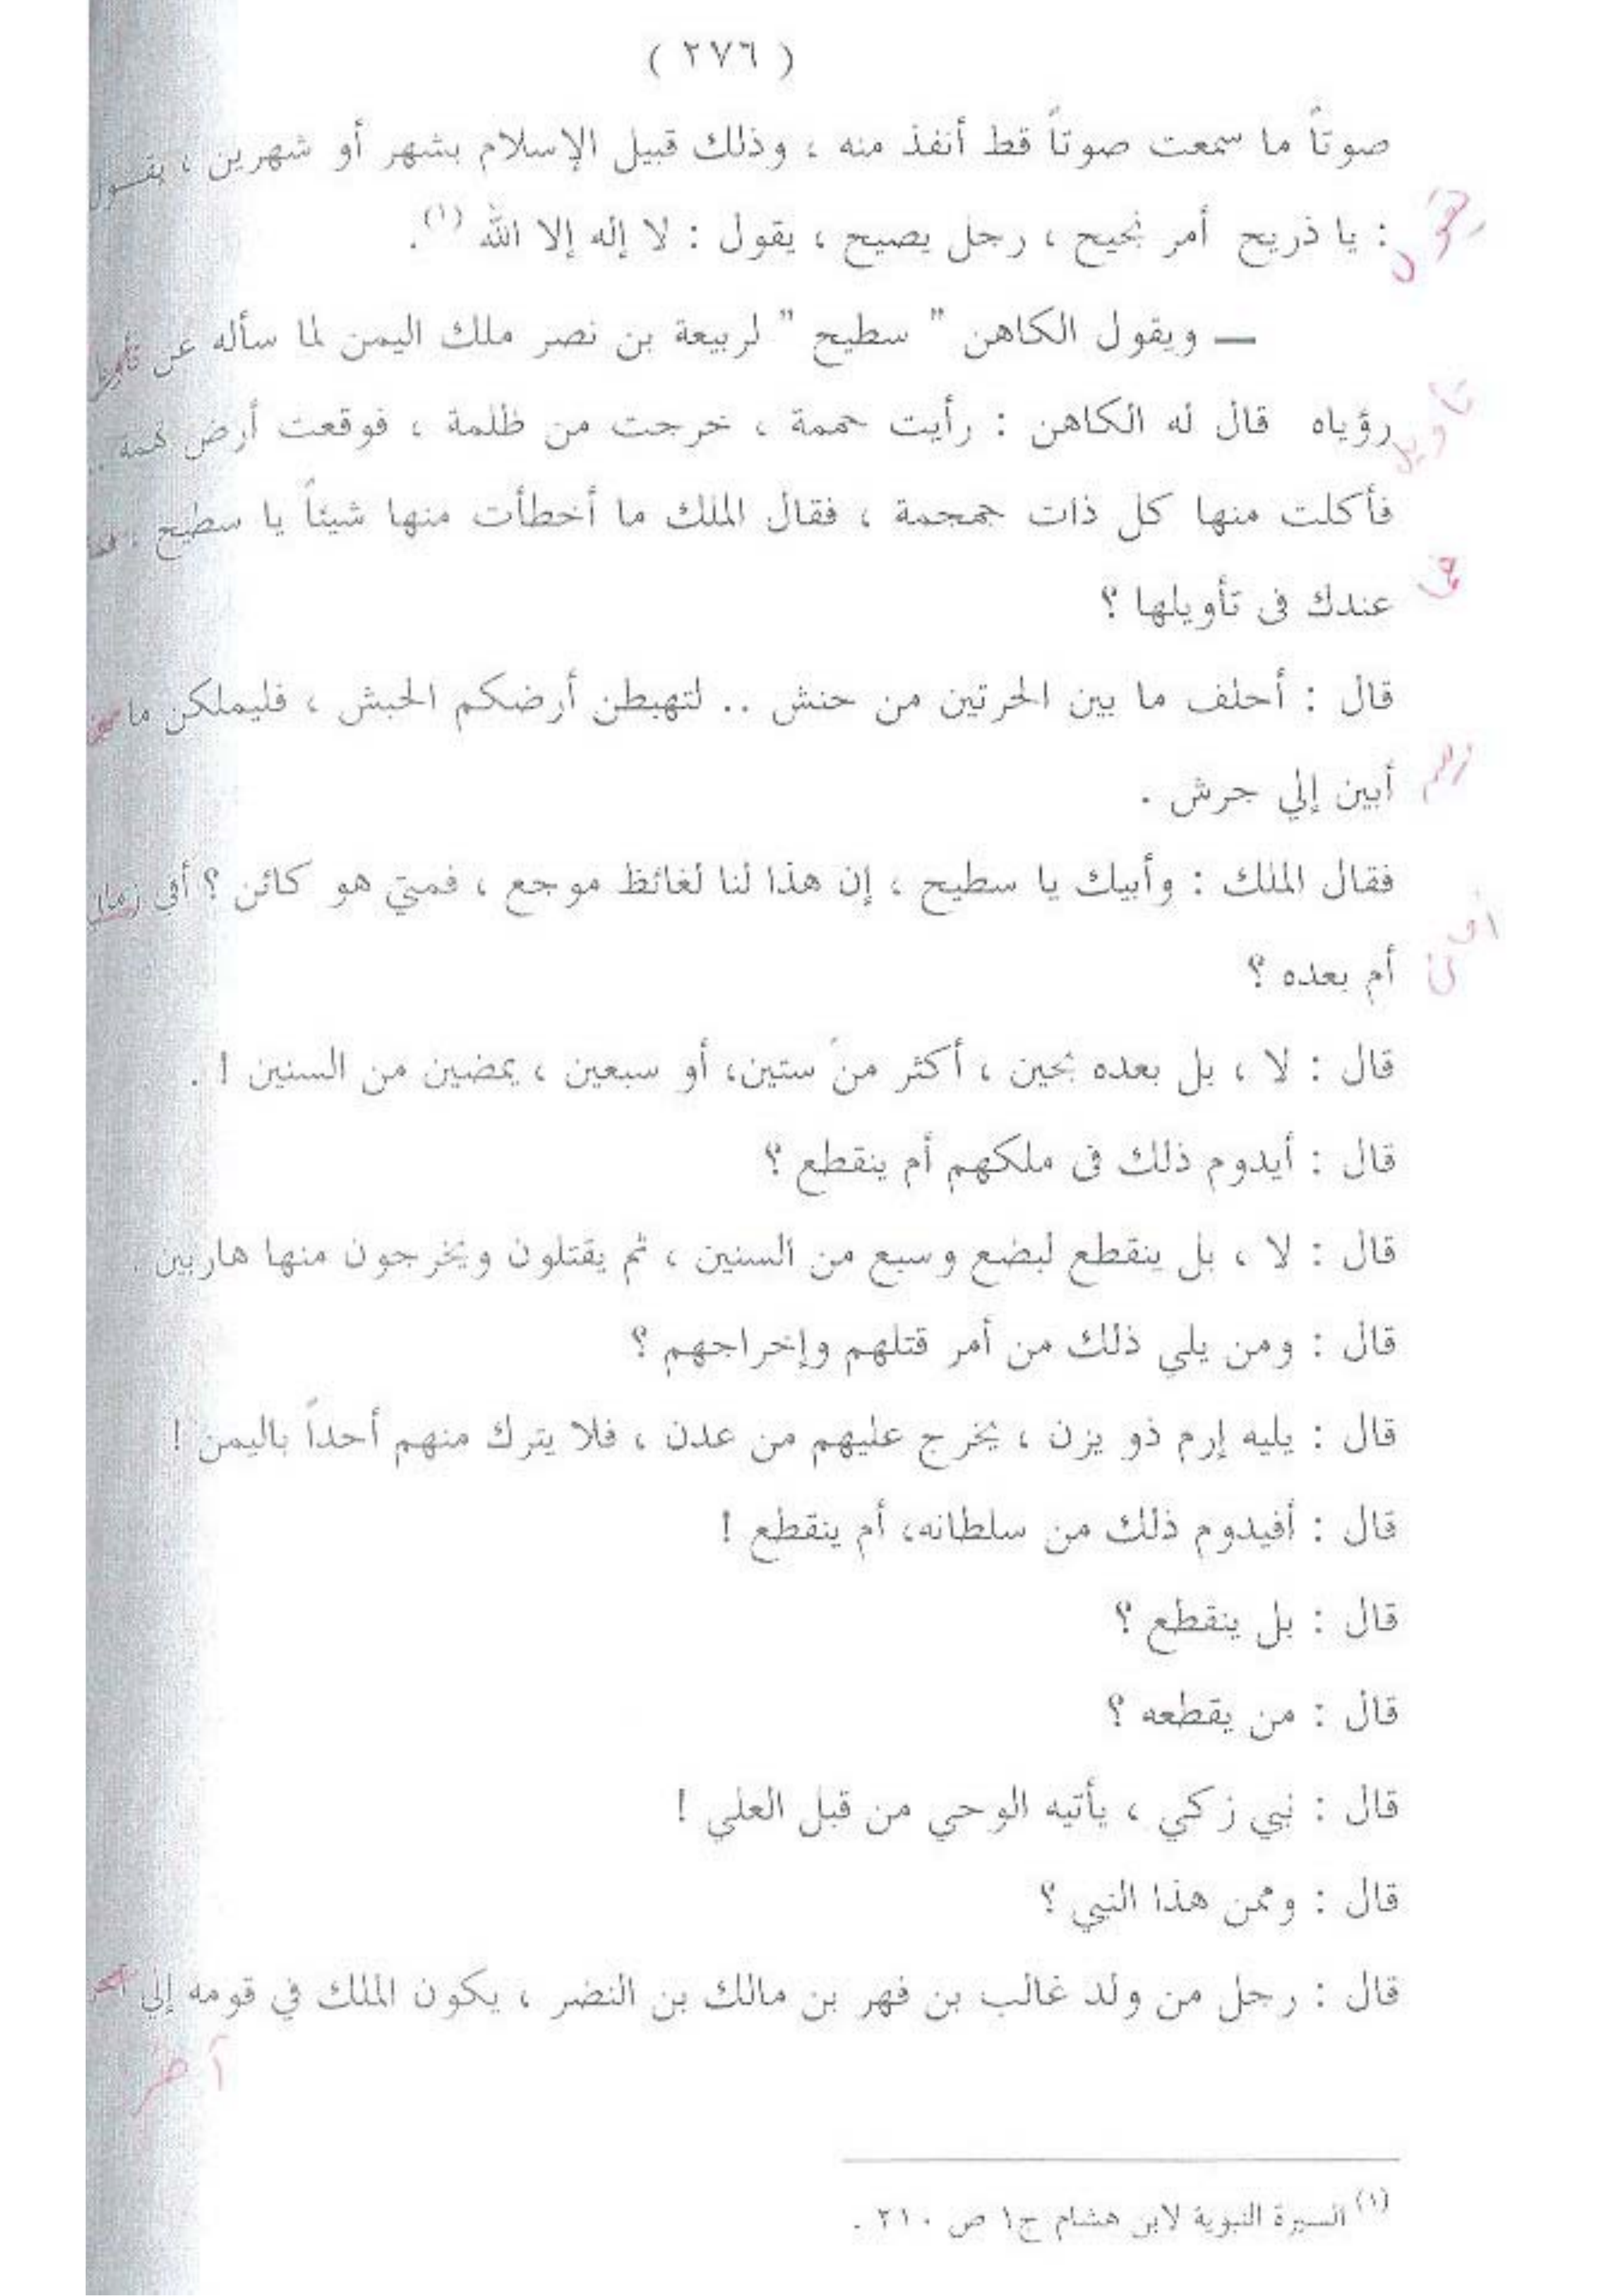 ( ٢٧٦ )
صوتاً ما سمعت صوتاً قط أنفذ منه ، وذلك قبيل الإسلام بشهر أو شهرين ، يقول
: يا ذريح أمر نجيح ، رجل يصيح ، يقول : لا إله إلا الله (١).
ـ ويقول الكاهن " سطيح " لربيعة بن نصر ملك اليمن لما سأله عن تأويل
رؤياه قال له الكاهن : رأيت حممة ، خرجت من ظلمة ، فوقعت أرض تهمة ..
تأويل
فأكلت منها كل ذات جمجمة ، فقال الملك ما أخطأت منها شيئاً يا سطيح ، فما
عندك فى تأويلها ؟
قال : أحلف ما بين الحرتين من حنش .. لتهبطن أرضكم الحبش ، فليملكن ما بين
أبين إلي جرش .
فقال الملك : وأبيك يا سطيح ، إن هذا لنا لغائظ موجع ، فمتى هو كائن ؟ أفي زماني
أم بعده ؟
قال : لا ، بل بعده بحين ، أكثر من ستين، أو سبعين ، يمضين من السنين ! .
قال : أيدوم ذلك فى ملكهم أم ينقطع ؟
قال : لا ، بل ينقطع لبضع وسبع من السنين ، ثم يقتلون ويخرجون منها هاربين .
قال : ومن يلي ذلك من أمر قتلهم وإخراجهم ؟
قال : يليه إرم ذو يزن ، يخرج عليهم من عدن ، فلا يترك منهم أحداً باليمن !
قال : أفيدوم ذلك من سلطانه، أم ينقطع !
قال : بل ينقطع ؟
قال : من يقطعه ؟
قال : نبي زكي ، يأتيه الوحي من قبل العلي !
قال : وممن هذا النبي ؟
قال : رجل من ولد غالب بن فهر بن مالك بن النضر ، يكون الملك في قومه إلي آخر
آخر
(١) السيرة النبوية لابن هشام ج١ ص ٢١٠ .